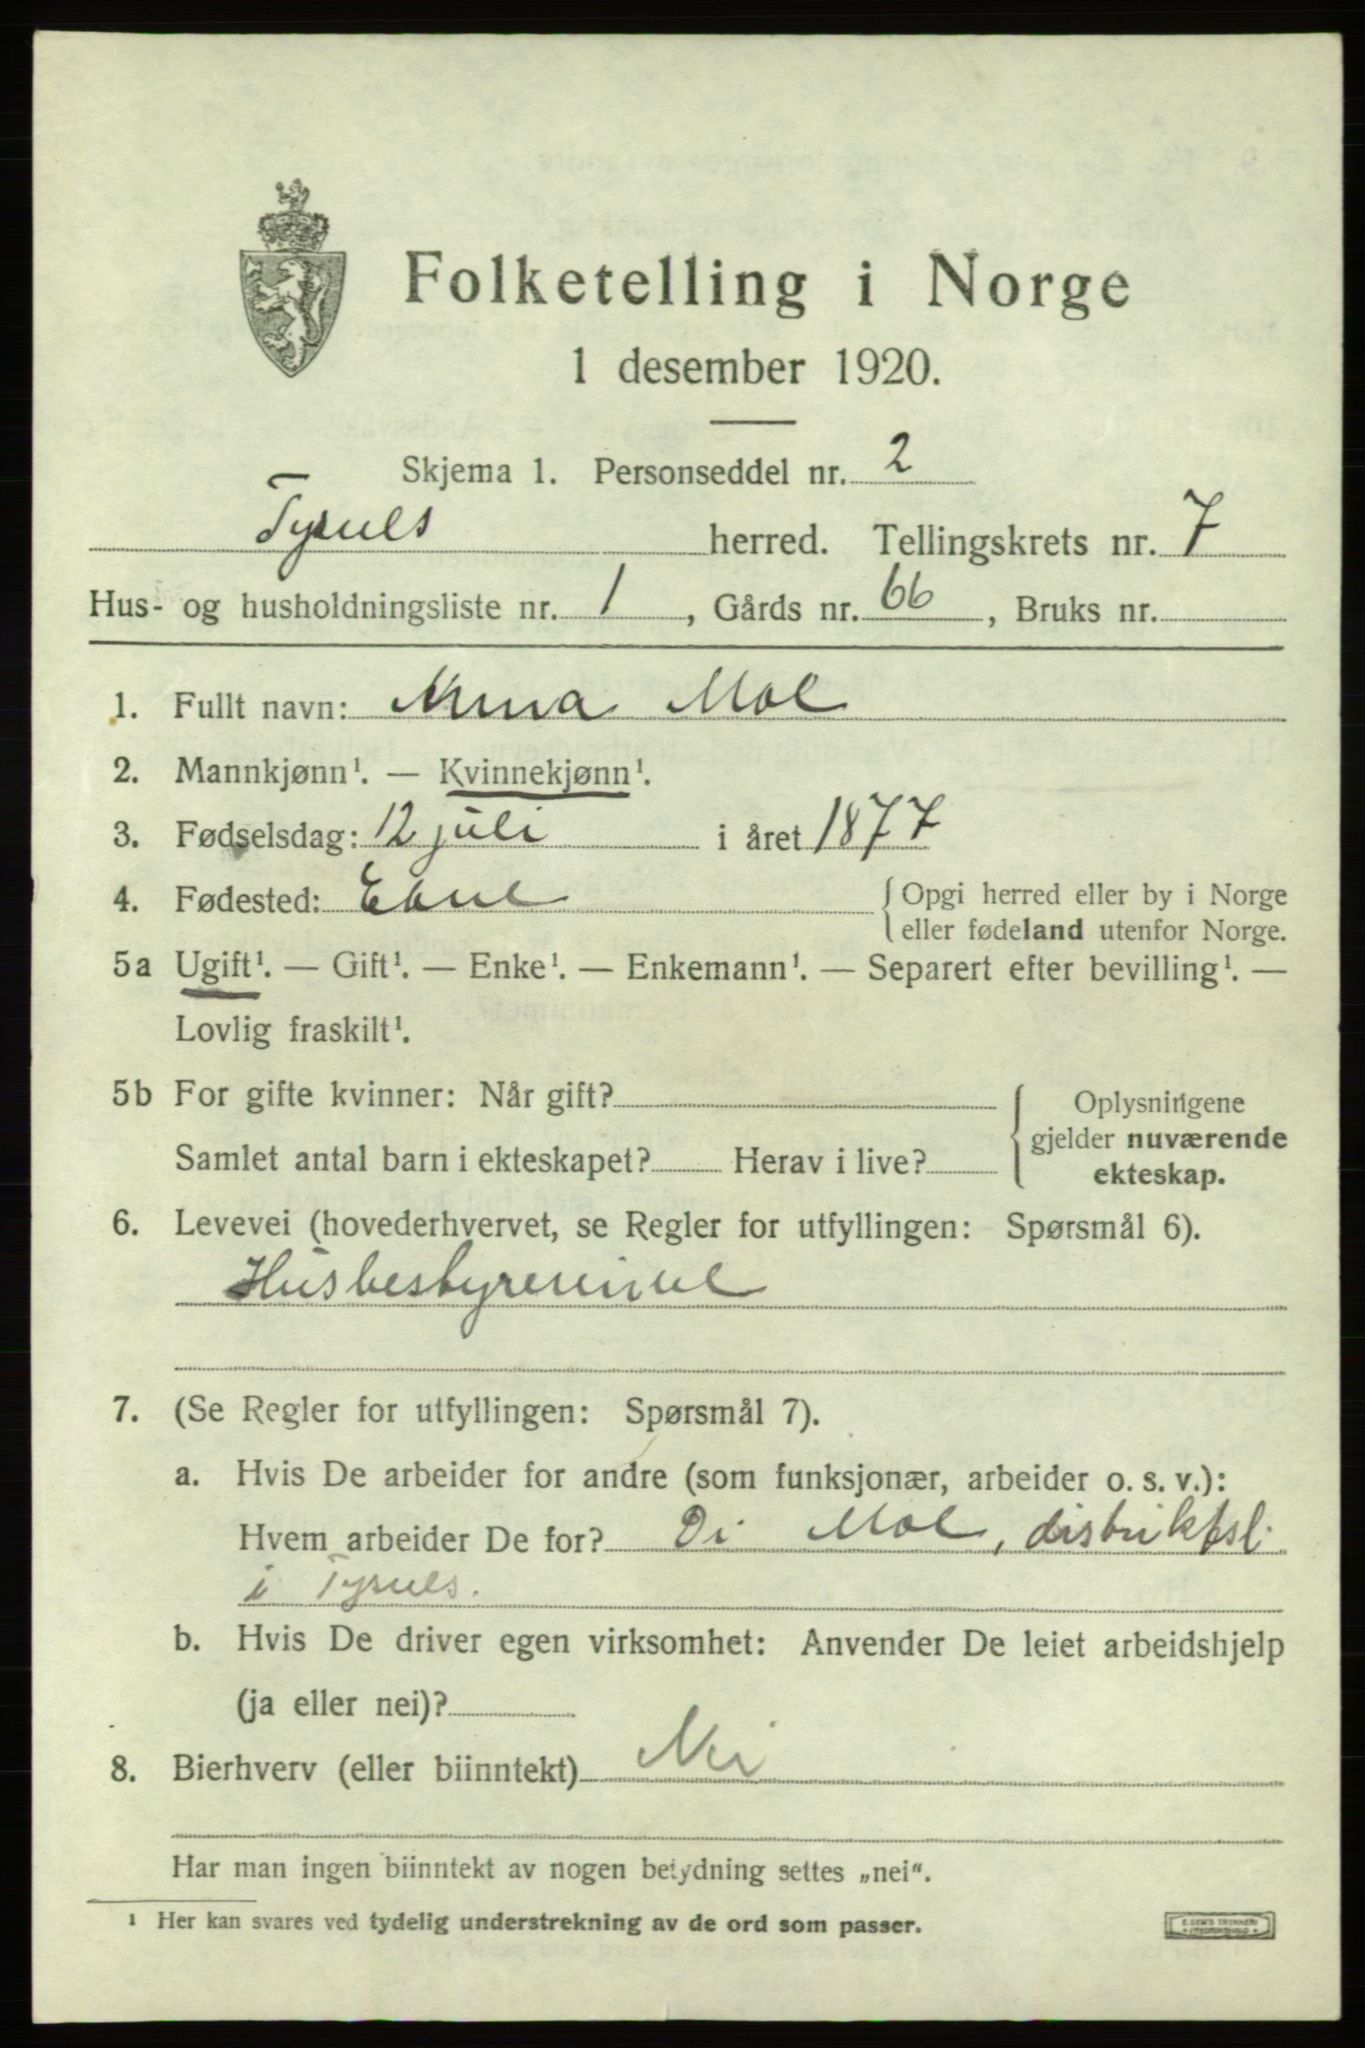 Folketelling i Norge
1 desember 1920.
Skjema 1. Personseddel nr. 2
Tysnes herred. Tellingskrets nr. 7
Hus- og husholdningsliste nr. 1, Gårds nr. 66, Bruks nr.
1. Fullt navn: Anna Moe
2. Mannkjønn¹. — Kvinnekjønn¹.
3. Fødselsdag: 12 juli i året 1877
4. Fødested: Etne {Opgi herred eller by i Norge
eller fødeland utenfor Norge.
5a Ugift¹. — Gift¹. — Enke¹. — Enkemann¹. — Separert efter bevilling¹. —
Lovlig fraskilt¹.
5b For gifte kvinner: Når gift? Oplysningene
gjelder nuværende
Samlet antal barn i ekteskapet? Herav i live?
ekteskap.
6. Levevei (hovederhvervet, se Regler for utfyllingen: Spørsmål 6).
Husbestyrerinne
7. (Se Regler for utfyllingen: Spørsmål 7).
a. Hvis De arbeider for andre (som funksjonær, arbeider o. s. v.):
Hvem arbeider De for? Moe, distriktsl.
i Tysnes.
b. Hvis De driver egen virksomhet: Anvender De leiet arbeidshjelp
(ja eller nei)?
8. Bierhverv (eller biinntekt) Nei
Har man ingen biinntekt av nogen betydning settes „nei“.
¹ Her kan svares ved tydelig understrekning av de ord som passer.
E. SEM'S TRYKKERI
FREDRIKSHALD